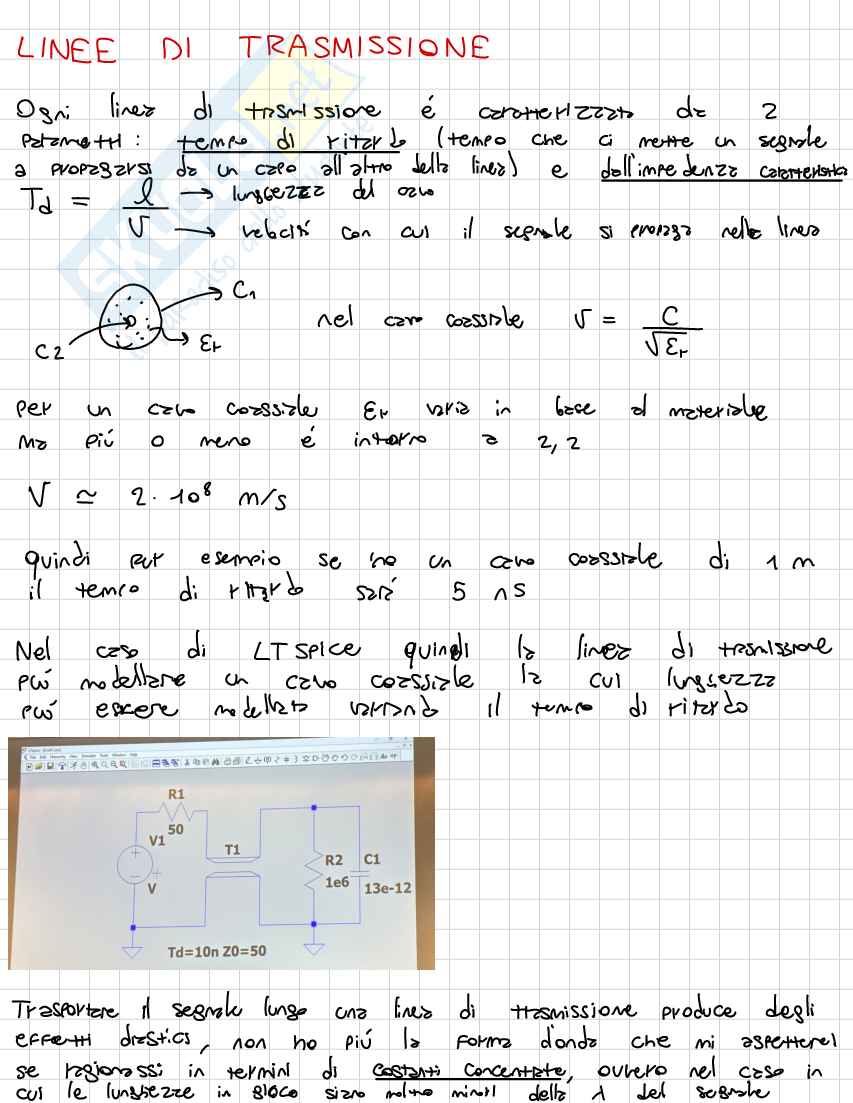 LINEE DI TRASMISSIONE
Ogni linea di trasmissione é caratterizzata da 2
parametri: tempo di ritardo (tempo che ci mette un segnale
a propagarsi da un capo all'altro della linea) e dall'impedenza caratteristica
Td = l / v → lunghezza del cavo
→ velocitá con cui il segnale si propaga nella linea
C1
C2
εr
nel cavo coassiale v = C / √εr
per un cavo coassiale εr varia in base al materiale
ma piú o meno é intorno a 2,2
V ≃ 2·10⁸ m/s
quindi per esempio se ho un cavo coassiale di 1 m
il tempo di ritardo sará 5 ns
Nel caso di LTspice quindi la linea di trasmissione
puó modellare un cavo coassiale la cui lunghezza
puó essere modellata variando il tempo di ritardo
R1
50
V1
V
T1
R2
1e6
C1
13e-12
Td=10n Z0=50
Trasportare il segnale lungo una linea di trasmissione produce degli
effetti drastici, non ho piú la forma d'onda che mi aspetterei
se ragionassi in termini di costanti concentrate, ovvero nel caso in
cui le lunghezze in gioco siano molto minori della λ del segnale